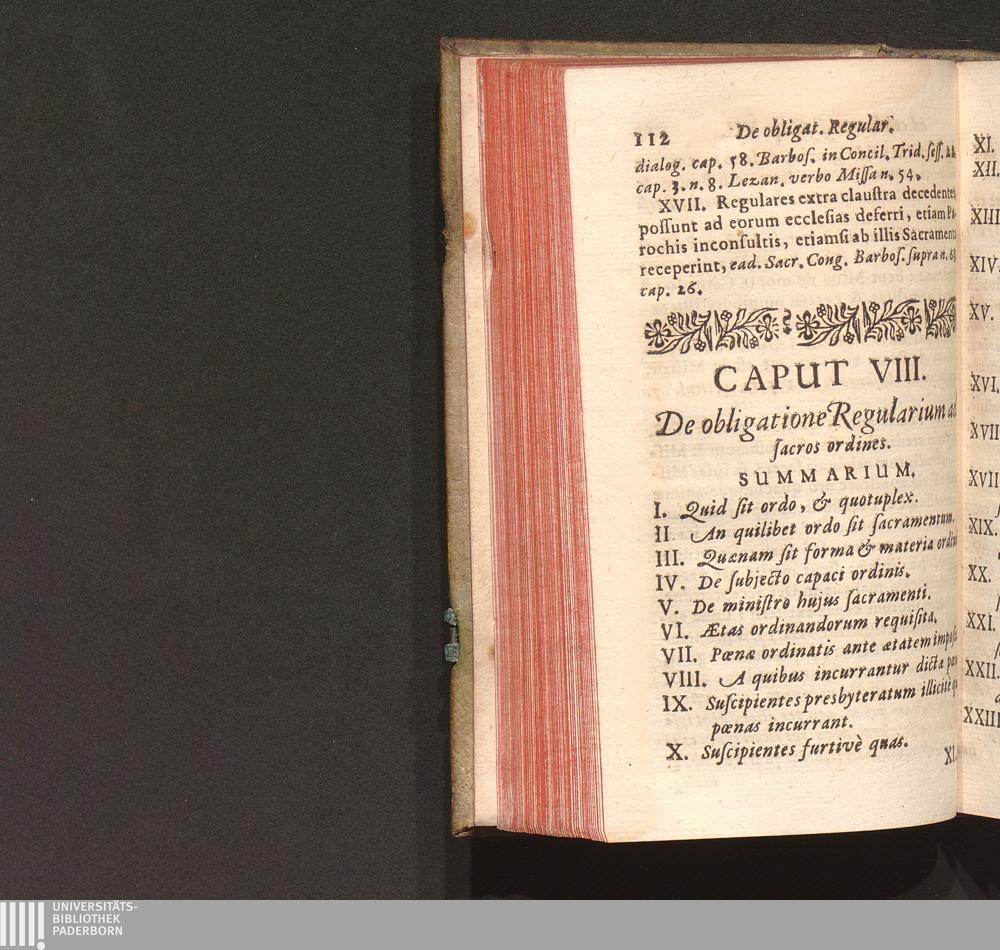 112 De obligat. Regular.
dialog. cap. 58. Barboſ. in Concil. Trid. ſeſſ. 22
cap. 3. n. 8. Lezan. verbo Miſſa n. 54.
XVII. Regulares extra clauſtra decedentes
poſſunt ad eorum eccleſias deferri, etiam Pa-
rochis inconſultis, etiamſi ab illis Sacrament
receperint, ead. Sacr. Cong. Barboſ. ſupra n. 6
cap. 26.
CAPUT VIII.
De obligatione Regularium a
ſacros ordines.
SUMMARIUM.
I. Quid ſit ordo, & quotuplex.
II. An quilibet ordo ſit ſacramentum.
III. Quænam ſit forma & materia ordi
IV. De ſubjecto capaci ordinis.
V. De miniſtro hujus ſacramenti.
VI. Ætas ordinandorum requiſita.
VII. Pœnæ ordinatis ante ætatem impoſ
VIII. A quibus incurrantur dicta pœn
IX. Suſcipientes presbyteratum illicitè q
pœnas incurrant.
X. Suſcipientes furtivè quas.
XI.
XI.
XII.
XIII
XIV.
XV.
XVI.
XVII
XVII
XIX.
XX.
XXI.
XXII.
XXIII
UNIVERSITÄTS-
BIBLIOTHEK
PADERBORN